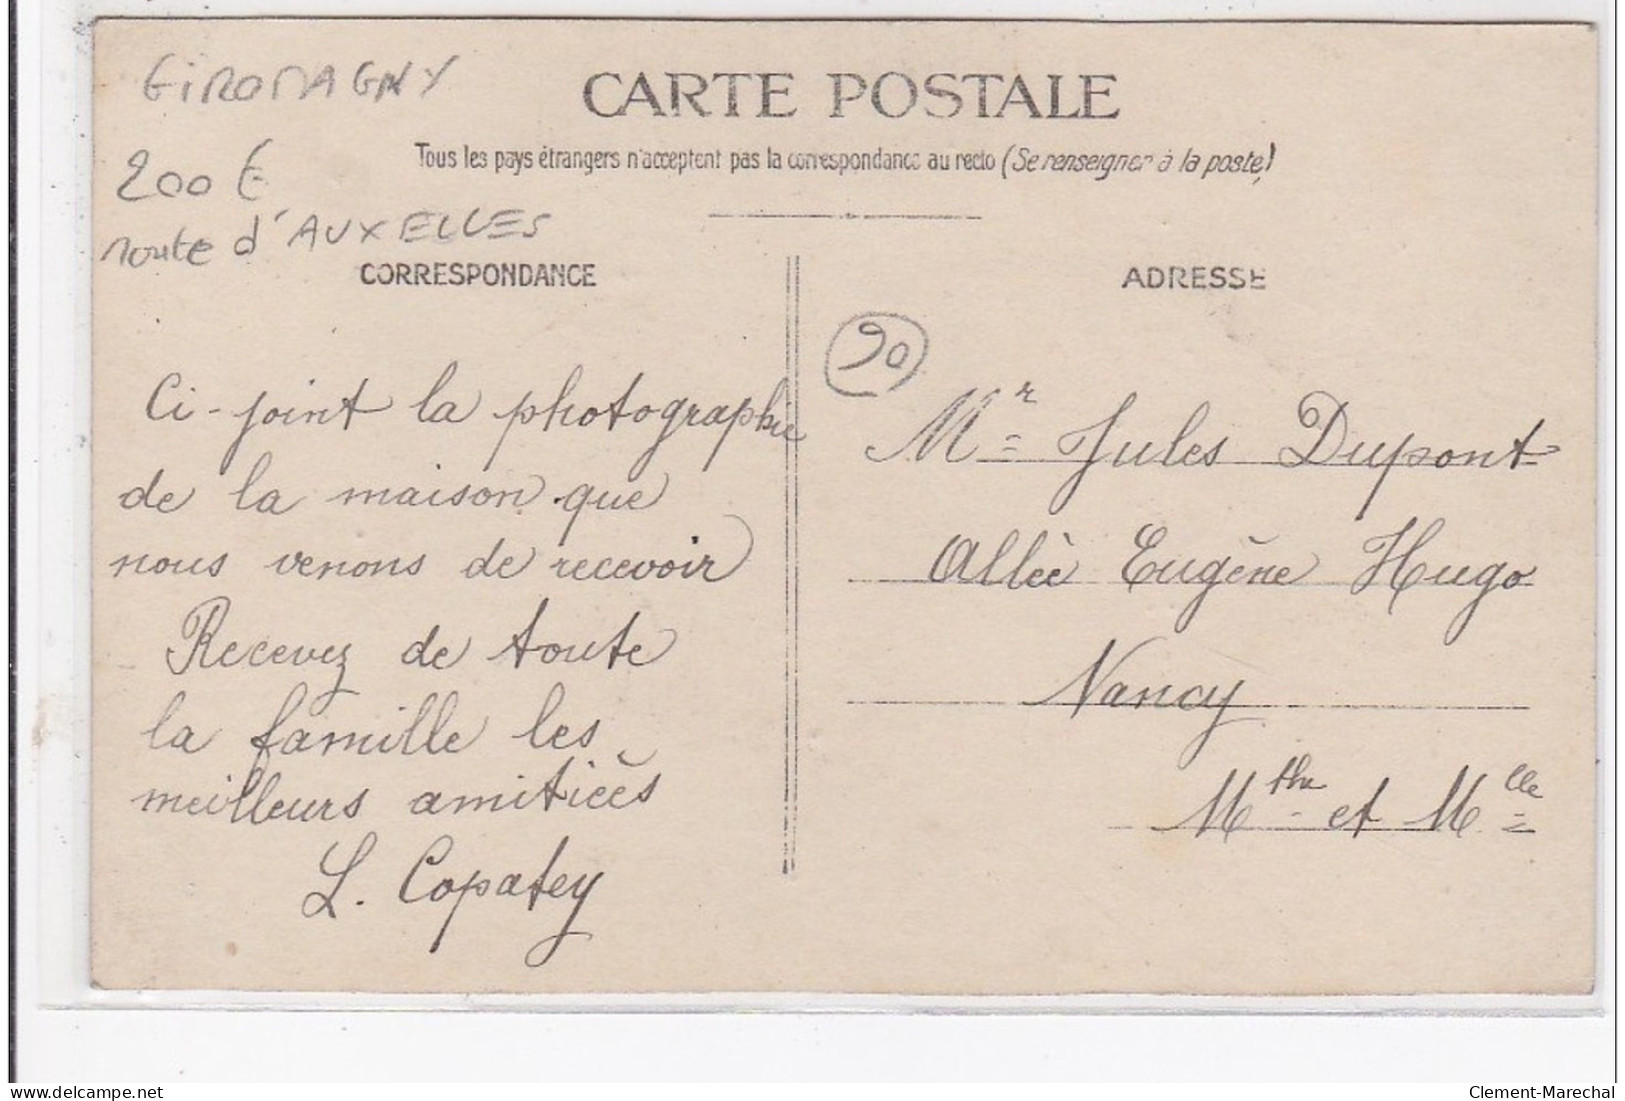 GIROMAGNY
CARTE POSTALE
200 €
Tous les pays étrangers n'acceptent pas la correspondance au recto (Se renseigner à la poste)
route d'AUXELLES
CORRESPONDANCE
ADRESSE
90
Ci-joint la photographie
de la maison que
nous venons de recevoir
Recevez de toute
la famille les
meilleurs amitièès
L. Copatey
Mr Jules Dupont
Allèe Eugène Hugo
Nancy
et Mlle
www.delcampe.net
Clement-Marechal